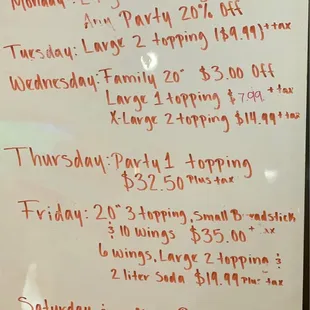 Monday:
Any Party 20% Off
Tuesday: Large 2 topping ($9.99)+tax
Wednesday: Family 20" $3.00 Off
Large 1 topping $7.99 +tax
X-Large 2 topping $14.99 +tax
Thursday: Party 1 topping
$32.50 Plus tax
Friday: 20" 3 topping, Small Breadstick
& 10 Wings $35.00 +
6 wings, Large 2 topping &
2 liter Soda $19.99 Plus tax
Saturday: